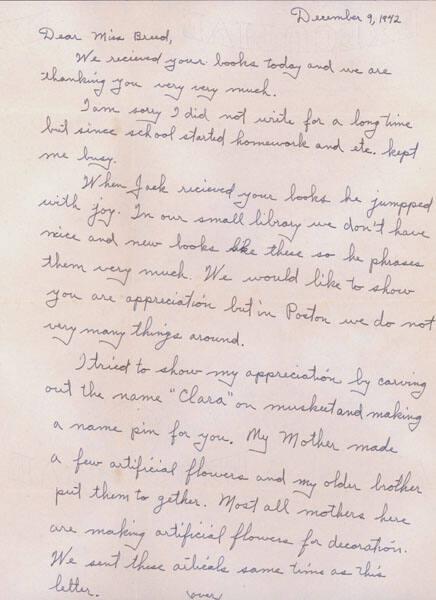 December 9, 1942
Dear Miss Breed,
We recieved your books today and we are
thanking you very very much.
I am sorry I did not write for a long time
but since school started homework and etc. kept
me busy.
When Jack recieved your books he jumpped
with joy. In our small library we don't have
nice and new books like these so he phrases
them very much. We would like to show
you are appreciation but in Poston we do not
very many things around.
I tried to show my appreciation by carving
out the name "Clara" on muskeet and making
a name pin for you. My Mother made
a few artificial flowers and my older brother
put them to gether. Most all mothers here
are making artificial flowers for decoration.
We sent these articals same time as this
letter.
over